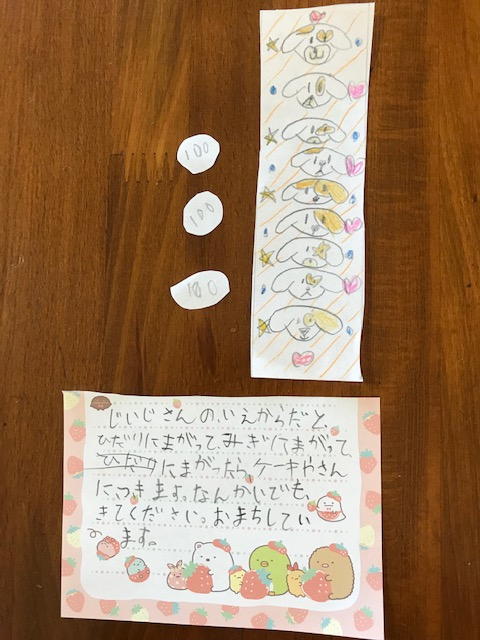 100
100
100
じいじさんの、いえからだと
ひだりにまがってみぎにまがって、
ひだりにまがったら、ケーキやさん
につきます。なんかいでも、
きてください。おまちしてい
ます。